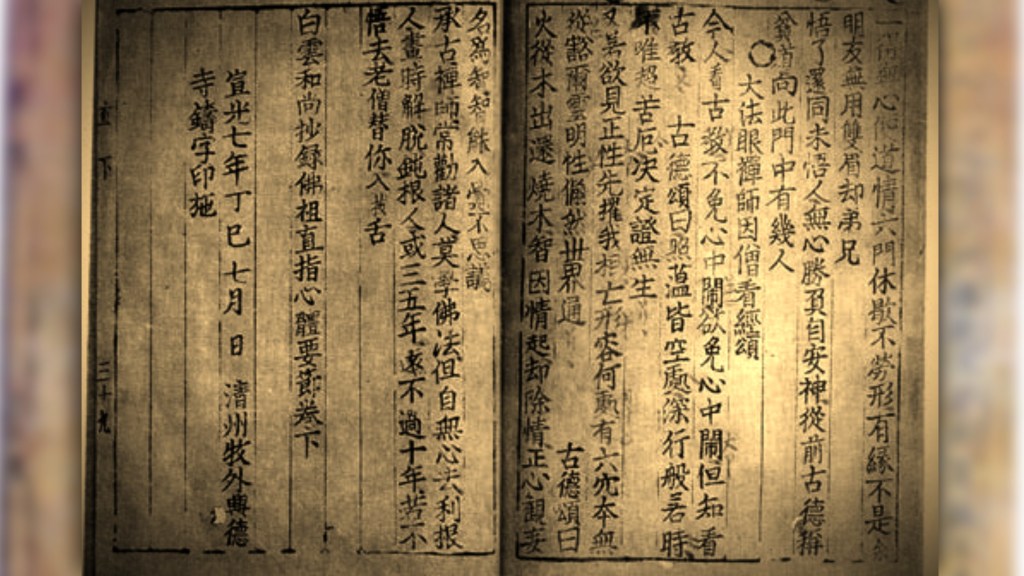 心能道情六門休歇不勞形有緣不是
朋友無用雙眉却弟兄
悟了還同未悟人無心勝負自安神從前古德稱
貧道向此門中有幾人
○大法眼禪師因僧看經頌
今人看古敎不免心中鬧欲免心中鬧但知看
古敎　古德頌曰照蘊皆空處深行般若時
唯超苦厄决定證無生
又若欲見正性先撥我相亡形容何處有六宂本無
從豁爾靈明性儼然世界通　古德頌曰
火從木出還燒木智因情起却除情正心觀妄
名爲知智能入覺不思議
承古禪師常勸諸人莫學佛法但自無心去利根
人晝時解脫鈍根人或三五年遠不過十年若不
悟去老僧替你入拔舌
白雲和尚抄錄佛祖直指心體要節卷下
宣光七年丁巳七月　日　淸州牧外興德
寺鑄字印施
直下　三十九